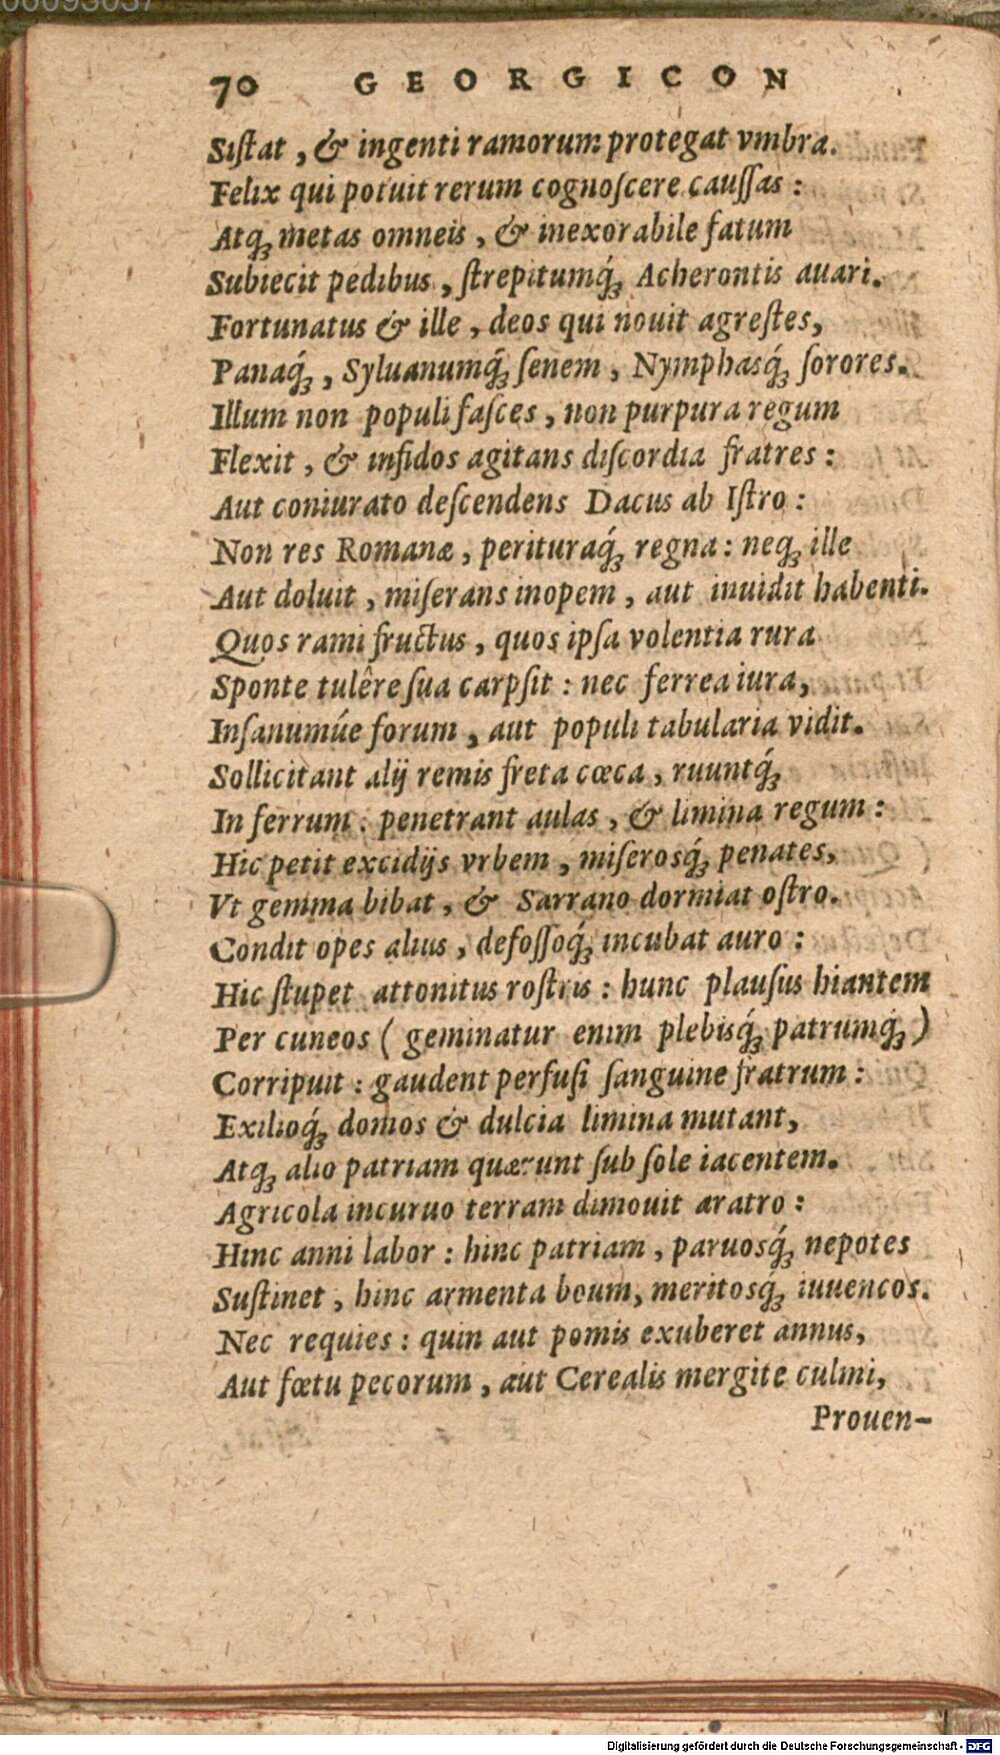 70 GEORGICON
Siſtat, & ingenti ramorum protegat vmbra.
Felix qui potuit rerum cognoſcere cauſſas:
Atq; metas omneis, & inexorabile fatum
Subiecit pedibus, ſtrepitumq́; Acherontis auari.
Fortunatus & ille, deos qui nouit agreſtes,
Panaq́;, Syluanumq́; ſenem, Nymphasq́; ſorores.
Illum non populi faſces, non purpura regum
Flexit, & infidos agitans diſcordia fratres:
Aut coniurato deſcendens Dacus ab Iſtro:
Non res Romanæ, perituraq́; regna: neq; ille
Aut doluit, miſerans inopem, aut inuidit habenti.
Quos rami fructus, quos ipſa volentia rura
Sponte tulêre ſua carpſit: nec ferrea iura,
Inſanumúe forum, aut populi tabularia vidit.
Sollicitant alij remis freta cœca, ruuntq́;
In ferrum: penetrant aulas, & limina regum:
Hic petit excidijs vrbem, miſerosq́; penates,
Vt gemma bibat, & Sarrano dormiat oſtro.
Condit opes alius, defoſſoq́; incubat auro:
Hic ſtupet attonitus roſtris: hunc plauſus hiantem
Per cuneos (geminatur enim plebisq́; patrumq́;)
Corripuit: gaudent perfuſi ſanguine fratrum:
Exilioq́; domos & dulcia limina mutant,
Atq; alio patriam quærunt ſub ſole iacentem.
Agricola incuruo terram dimouit aratro:
Hinc anni labor: hinc patriam, paruosq́; nepotes
Suſtinet, hinc armenta boum, meritosq́; iuuencos.
Nec requies: quin aut pomis exuberet annus,
Aut fœtu pecorum, aut Cerealis mergite culmi,
Prouen-
Digitalisierung gefördert durch die Deutsche Forschungsgemeinschaft - DFG